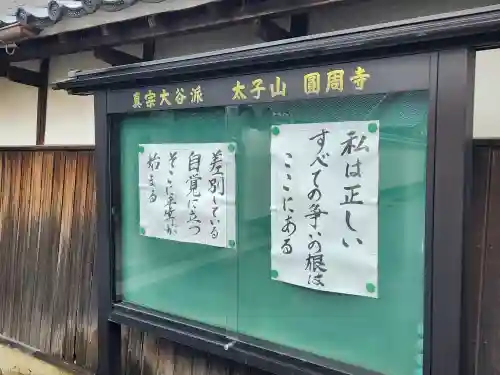 真宗大谷派 太子山 圓周寺
私は正しい
すべての争いの根は
ここにある
差別している
自覚に立つ
そこに平安が
始まる